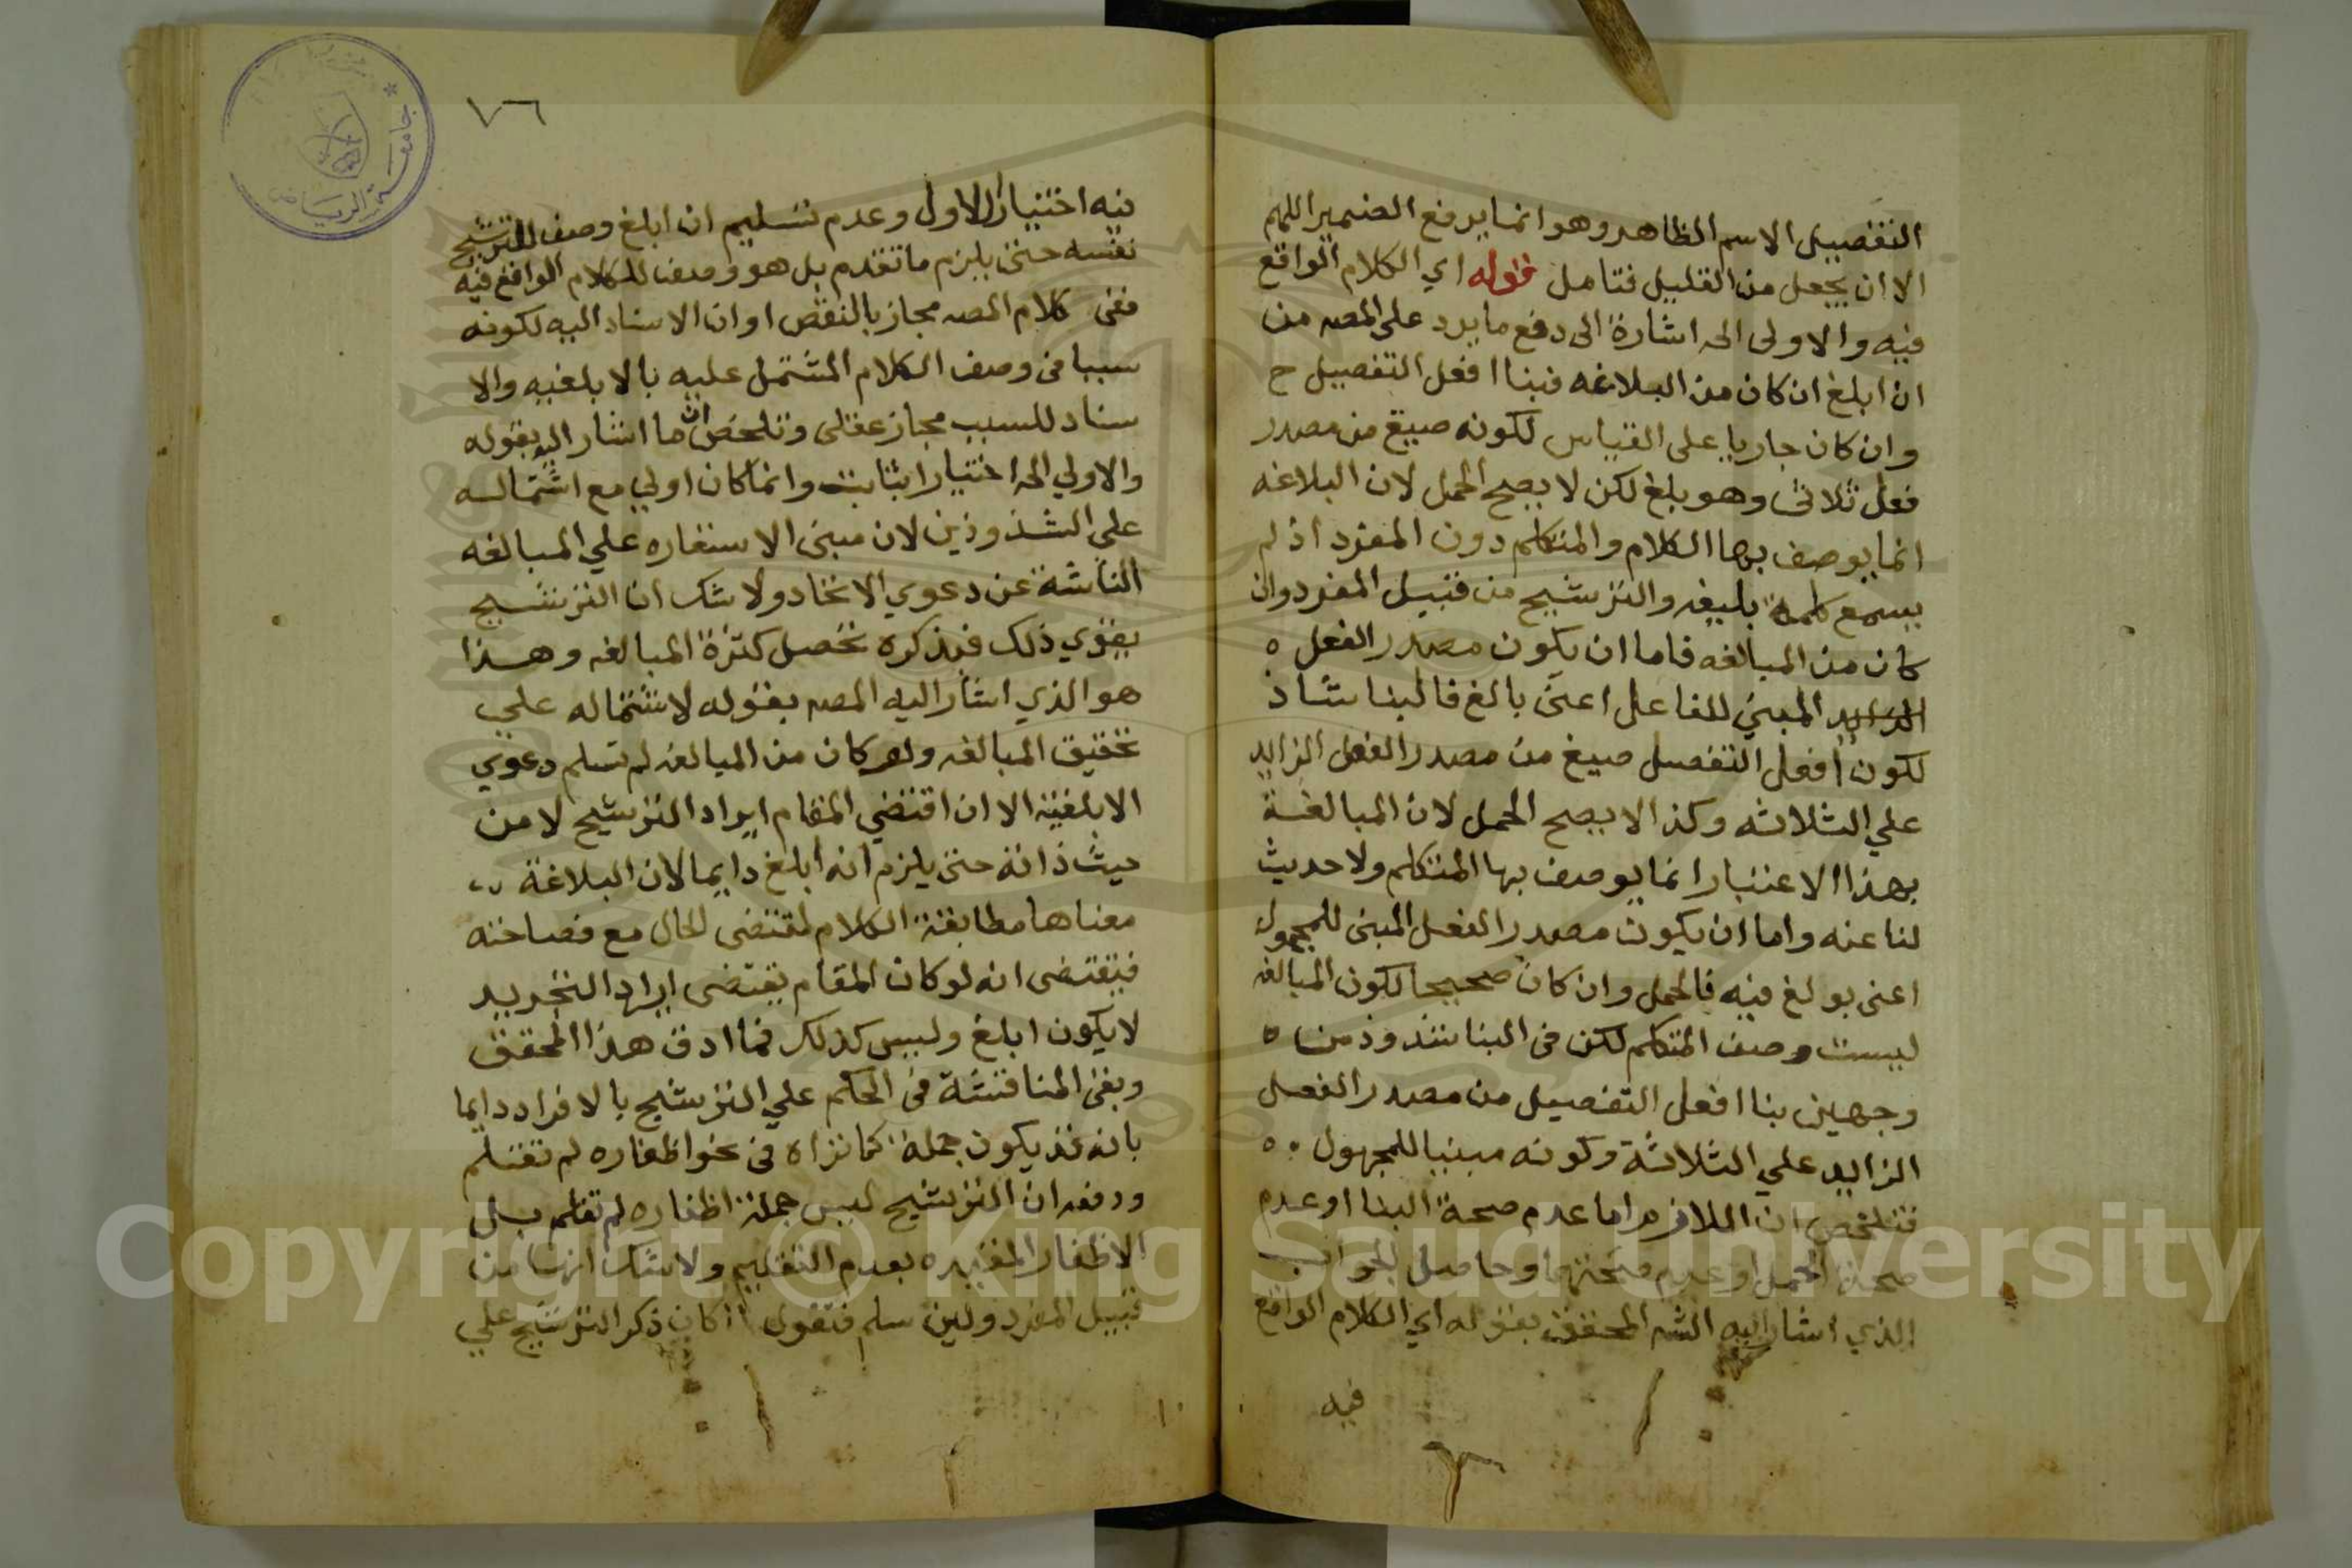 التفضيل الاسم الظاهر وهو انما يرفع الضمير اللهم
الا ان يجعل من القليل فتامل قوله اي الكلام الواقع
فيه والاولى الخ اشارة الى دفع ما يرد على المصه من
ان ابلغ ان كان من البلاغه فبناا فعل التفضيل ح
وان كان جاريا على القياس لكونه صيغ من مصدر
فعل ثلاثى وهو بلغ لكن لا يصح الحمل لان البلاغه
انما يوصف بها الكلام والمتكلم دون المفرد اذ لم
يسمع كلمة بليغه والترشيح من قبيل المفرد وان
كان من المبالغه فاما ان يكون مصدر الفعل ٥
المبني للفاعل اعنى بالغ فالبنا شاذ
لكون افعل التفضل صيغ من مصدر الفعل الزايد
علي الثلاثه وكذا لا يصح الحمل لان المبالغة
بهذا الاعتبار انما يوصف بها المتكلم ولا حديث
لنا عنه واما ان يكون مصدر الفعل المبنى للمجهول
اعنى بولغ فيه فالحمل وان كان صحيحا لكون المبالغه
ليست وصف المتكلم لكن فى البنا شذوذ من ٥
وجهين بناا فعل التفضيل من مصدر الفعل
الزايد علي الثلاثة وكونه مبنيا للمجهول ٥٠
فتلخص ان اللازم اما عدم صحة البنا او عدم
صحة الحمل او عدم صحتهما وحاصل الجواب
الذي اشار اليه الشه المحقق بقوله اي الكلام الواقع
فيه
٧٦
فيه اختيار الاول وعدم تسليم ان ابلغ وصف للترشيح
نفسه حتى يلزم ما تقدم بل هو وصف للكلام الواقع فيه
ففى كلام المصه مجاز بالنقص او ان الاسناد اليه لكونه
سببا فى وصف الكلام المشتمل عليه بالابلغيه والا
سناد للسبب مجاز عقلى وتلخص ان ما اشار اليه بقوله
والاولي الخ اختيار الثابت وانما كان اولي مع اشتماله
على الشذوذين لان مبنى الاستعاره علي المبالغه
الناشة عن دعوي الاتحاد ولا شك ان الترشيح
يقوي ذلك فبذكره تحصل كثرة المبالغه وهذا
هو الذي اشار اليه المصه بقوله لاشتماله علي
تحقيق المبالغه ولو كان من المبالغه لم تسلم دعوي
الابلغية الا ان اقتضي المقام ايراد الترشيح لا من
حيث ذاته حتى يلزم انه ابلغ دايما لان البلاغة
معناها مطابقة الكلام لمقتضى الحال مع فصاحته
فيقتضى انه لو كان المقام يقتضى ايراد التجريد
لا يكون ابلغ وليس كذلك فما ادق هذا المحقق
وبقى المناقشة فى الحكم علي الترشيح بالافراد دايما
بانه قد يكون جملة كما تراه فى نحو اظفاره لم تقلم
ودفعه ان الترشيح ليس جملة اظفاره لم تقلم بل
الاظفار المقيده بعدم التقليم ولا شك انها من
قبيل المفرد ولين سلم فنقول كان ذكر الترشيح علي
جامعة الرياض
Copyright © King Saud University